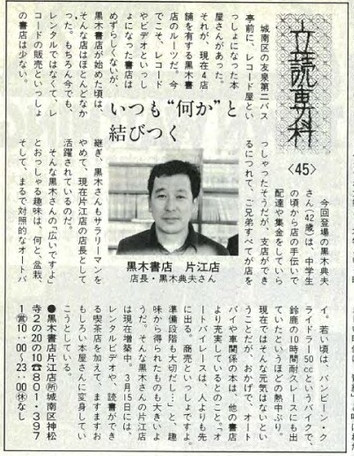 立読専科
〈45〉
城南区の友泉第二バス
亭前に、レコード屋とい
っしょになった本
屋さんがあった。
それが、現在4店
舗を有する黒木書
店のルーツだ。今
でこそ、レコード
やビデオといっし
ょになった書店は
めずらしくないが、
黒木書店が始めた頃は、
そんな店はほとんどなか
った。もちろん今でも、
レンタルではなくて、レ
コードの販売といっしょ
の書店は少ない。
いつも“何か”と
結びつく
今回登場の黒木典夫
さん(42歳)は、中学生
の頃から店の手伝いで
配達や集金をしていら
っしゃったそうだが、支店ができ
るにつれて、ご兄弟すべてが店を
継ぎ、黒木さんもサラリーマンを
やめて、現在片江店の店長として
活躍されているのだ。
そんな黒木さんの「広いですよ」
とおっしゃる趣味は、何と、盆栽
そして、まるで対照的なオートバ
黒木書店 片江店
店長・黒木典夫さん
イ。若い頃は、バンビーン・ク
ライドラー50ccというバイクで、
鈴鹿の10時間耐久レースにも出
ていたというほどの熱中ぶり。
現在ではそんな元気はないとい
うことだが、おかげで、オート
バイや車関係の本は、他の書店
より充実しているとのこと。「オ
ートバイレースは、人よりも先
に出る。商売といっしょですよ。
準備段階も大切だし…」と、趣
味から得られたものも大きいよ
うだ。そんな黒木さんの片江店
は現在増築中。3月15日には、
レンタルビデオや、読書ができ
る喫茶店も加えて、ますますお
もしろい本屋さんに変身してい
こうとしている。
●黒木書店 片江店 所城南区神松
寺2の20の10☎801・397
1営10:00〜23:00休なし